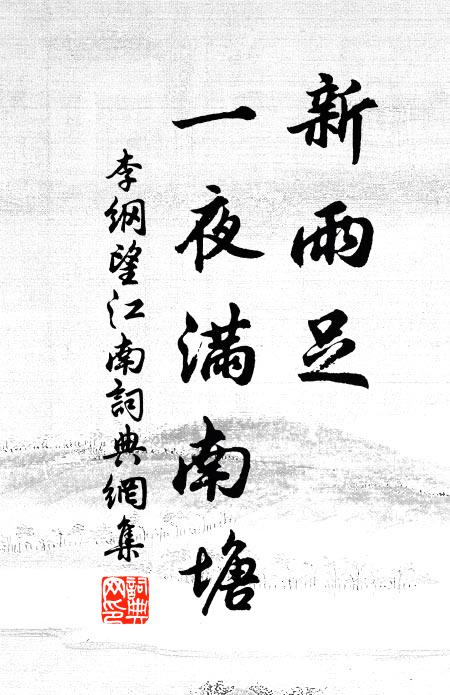 新雨足
一夜满南塘
李纲望江南詞典網集
詞典
网印